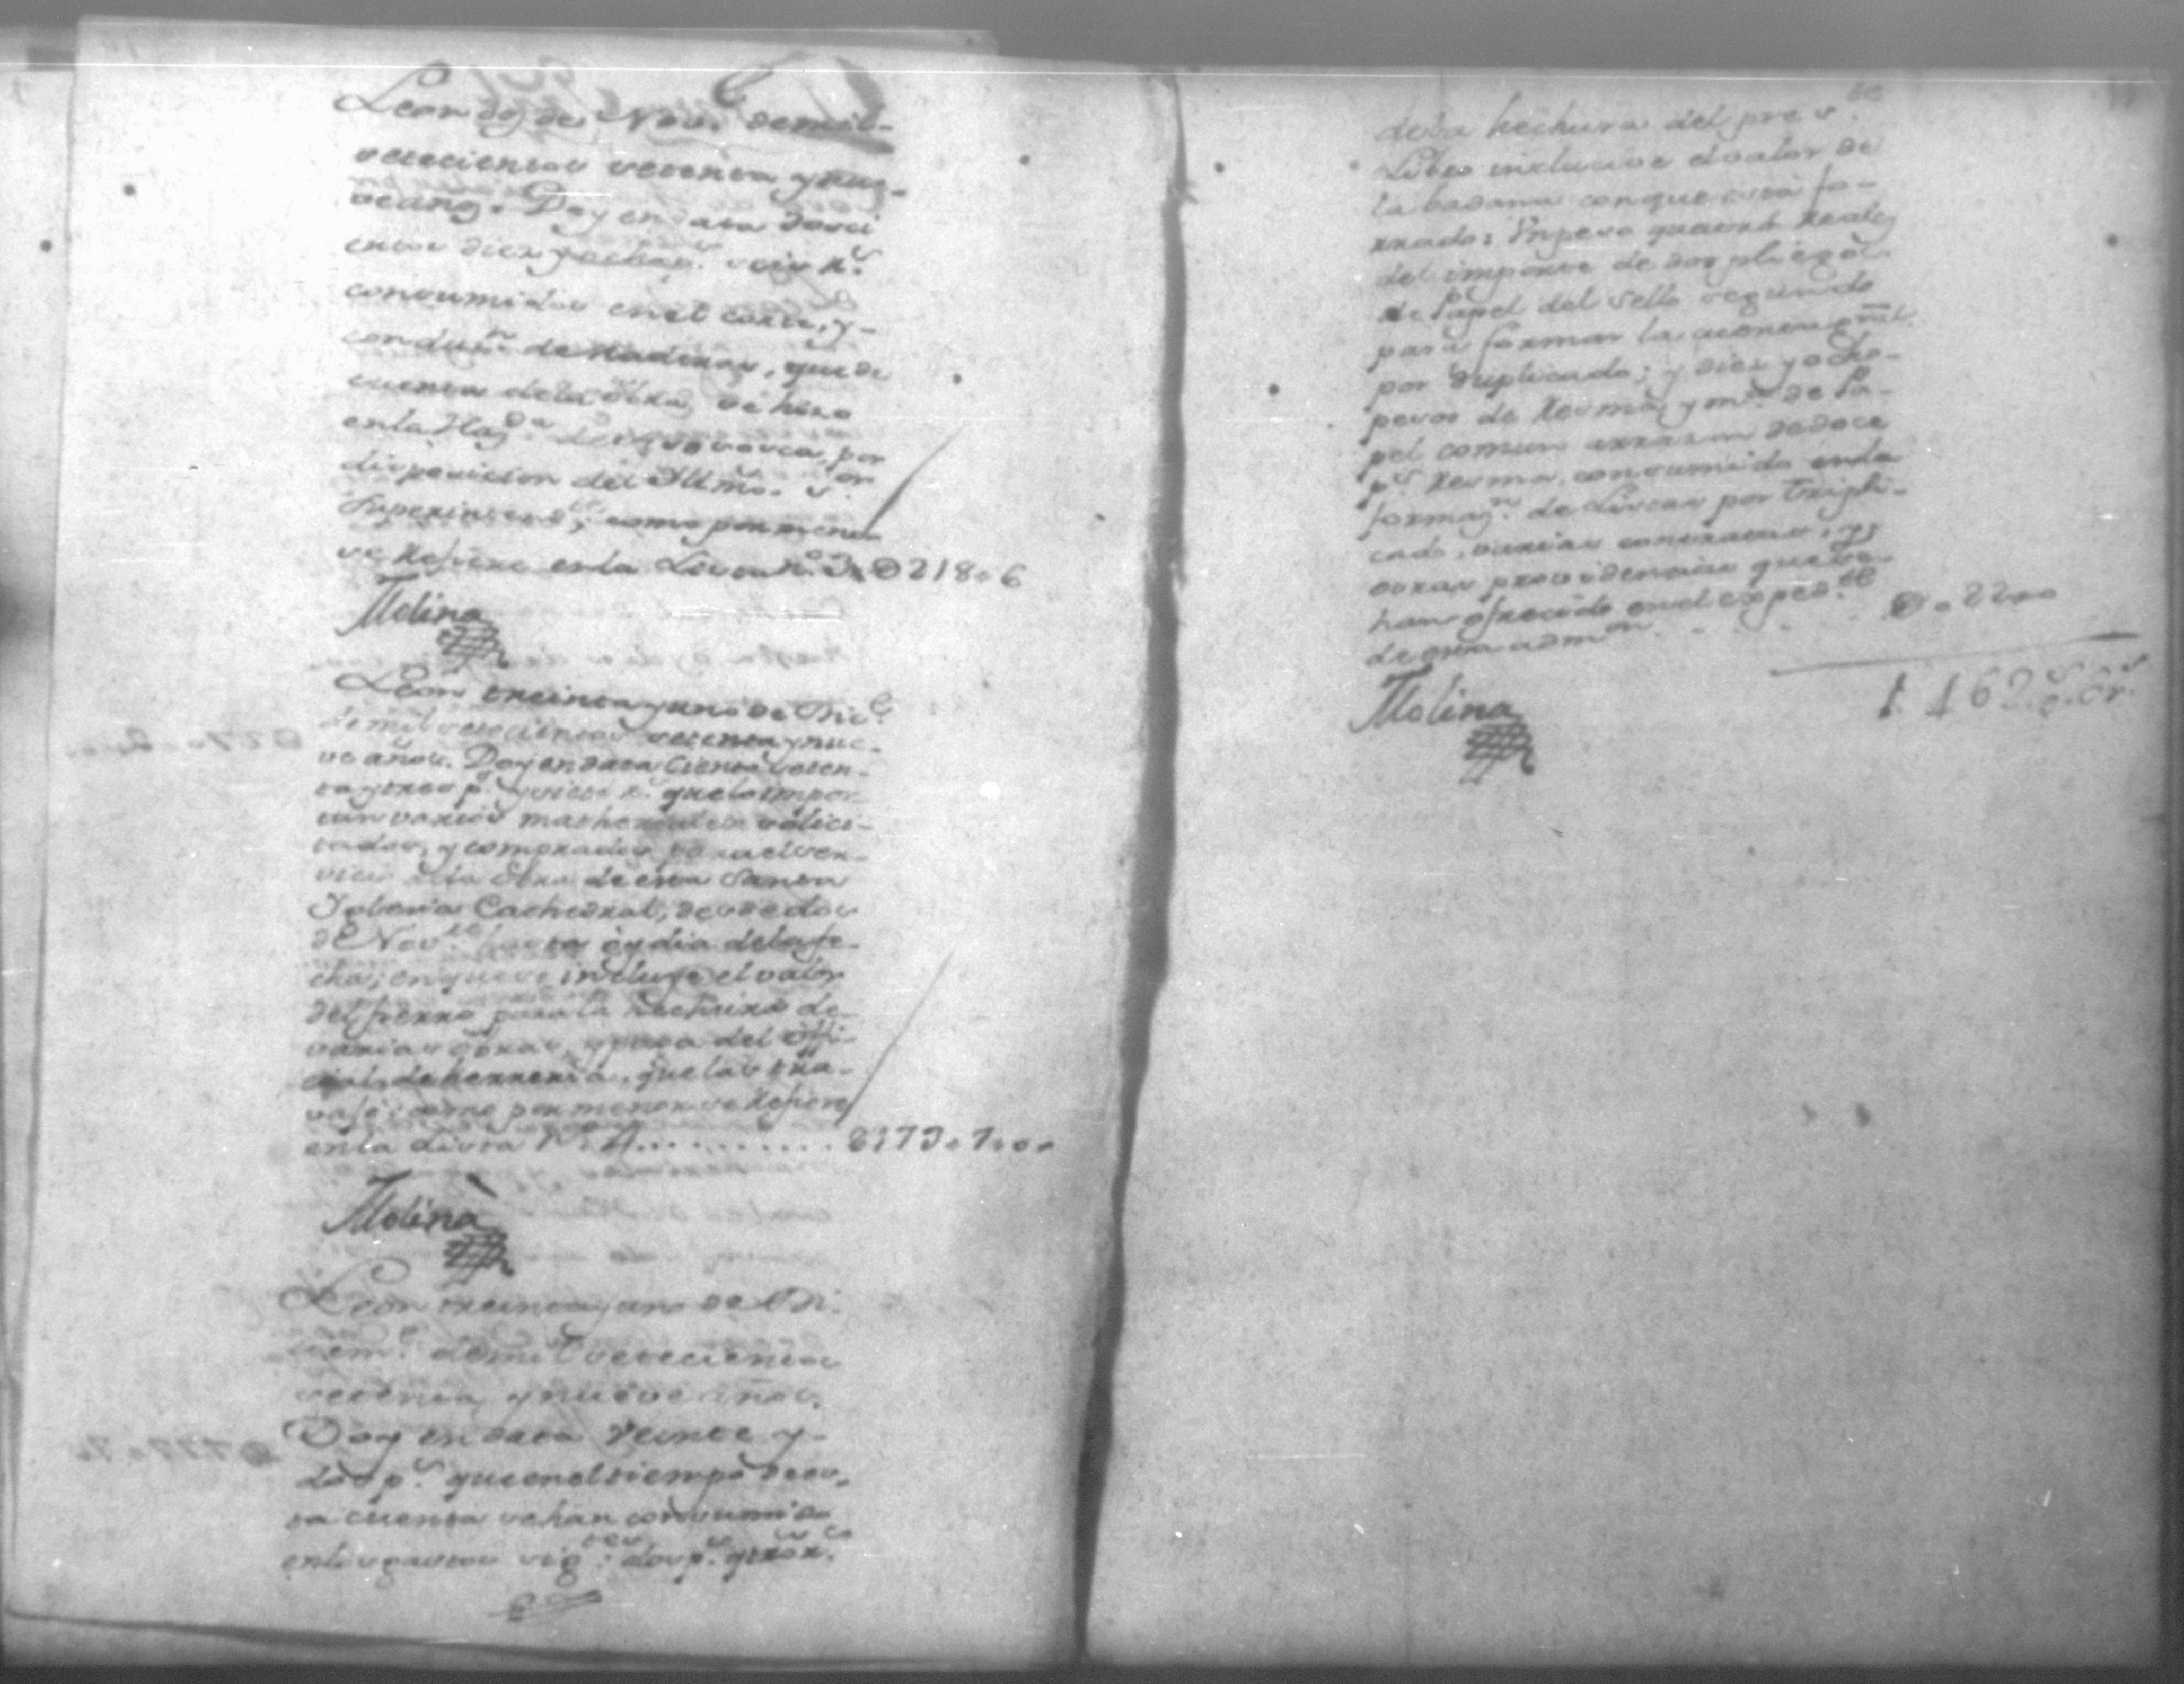 Leon dos de Nov.e de mil-
setecientos setenta y nue-
ve ang.s Doy en data dosci
entos diez y ocho p.s seis r.s
consumidos en el corte, y-
conduc.n de Maderas, que de
cuenta de la Obra, se hizo
en la Haz.da de por
disposicion del Illmo. S.or
Superintend.te como por menor
se Refiere en la Livra N.o 3. 0218.6
Molina
Leon treinta y uno de Dic.e
de mil setecientos setenta y nue-
ve años. Doy en data Ciento seten-
ta y tres p.s y siete r.s que lo impor
tan varios matheriales solici-
tados, y comprados para el ser-
vicio de la Obra de esta Santa
Iglesia Cathedral, desde dos
de Nov.re hasta oy dia de la fe-
cha; en que se incluye el valor
del fierro para la hechura de
varias obras, y paga del Offi-
cial de herreria, que las tra-
vajó: como por menor se Refiere
en la Livra N.o 4........... 0173.7...
Molina
Leon treinta y uno de Di-
ciem.e de mil setecientos
setenta, y nueve años.
Doy en data veinte y-
dos p.s que en el tiempo de es-
ta cuenta se han consumido
en los gastos sig.tes dos p.s y
de la hechura del pres.te
Libro inclusive el valor de
la badana con que está fo-
rrado: Un peso quatro Reales
del importe de dos pliegos
de Papel del Sello segundo
para formar la cuenta gral
por duplicado; y diez y ocho-
pesos de Resma y m.a de Pa-
pel comun a razon de doce
p.s Resma, consumido en la
formaz.n de Livras por tripli-
cado, varias contratas, y
otras providencias que se
han ofrecido en el exped.te
de esta adm.on . . . . 0.22..
1.162.p.s 6r.s
Molina